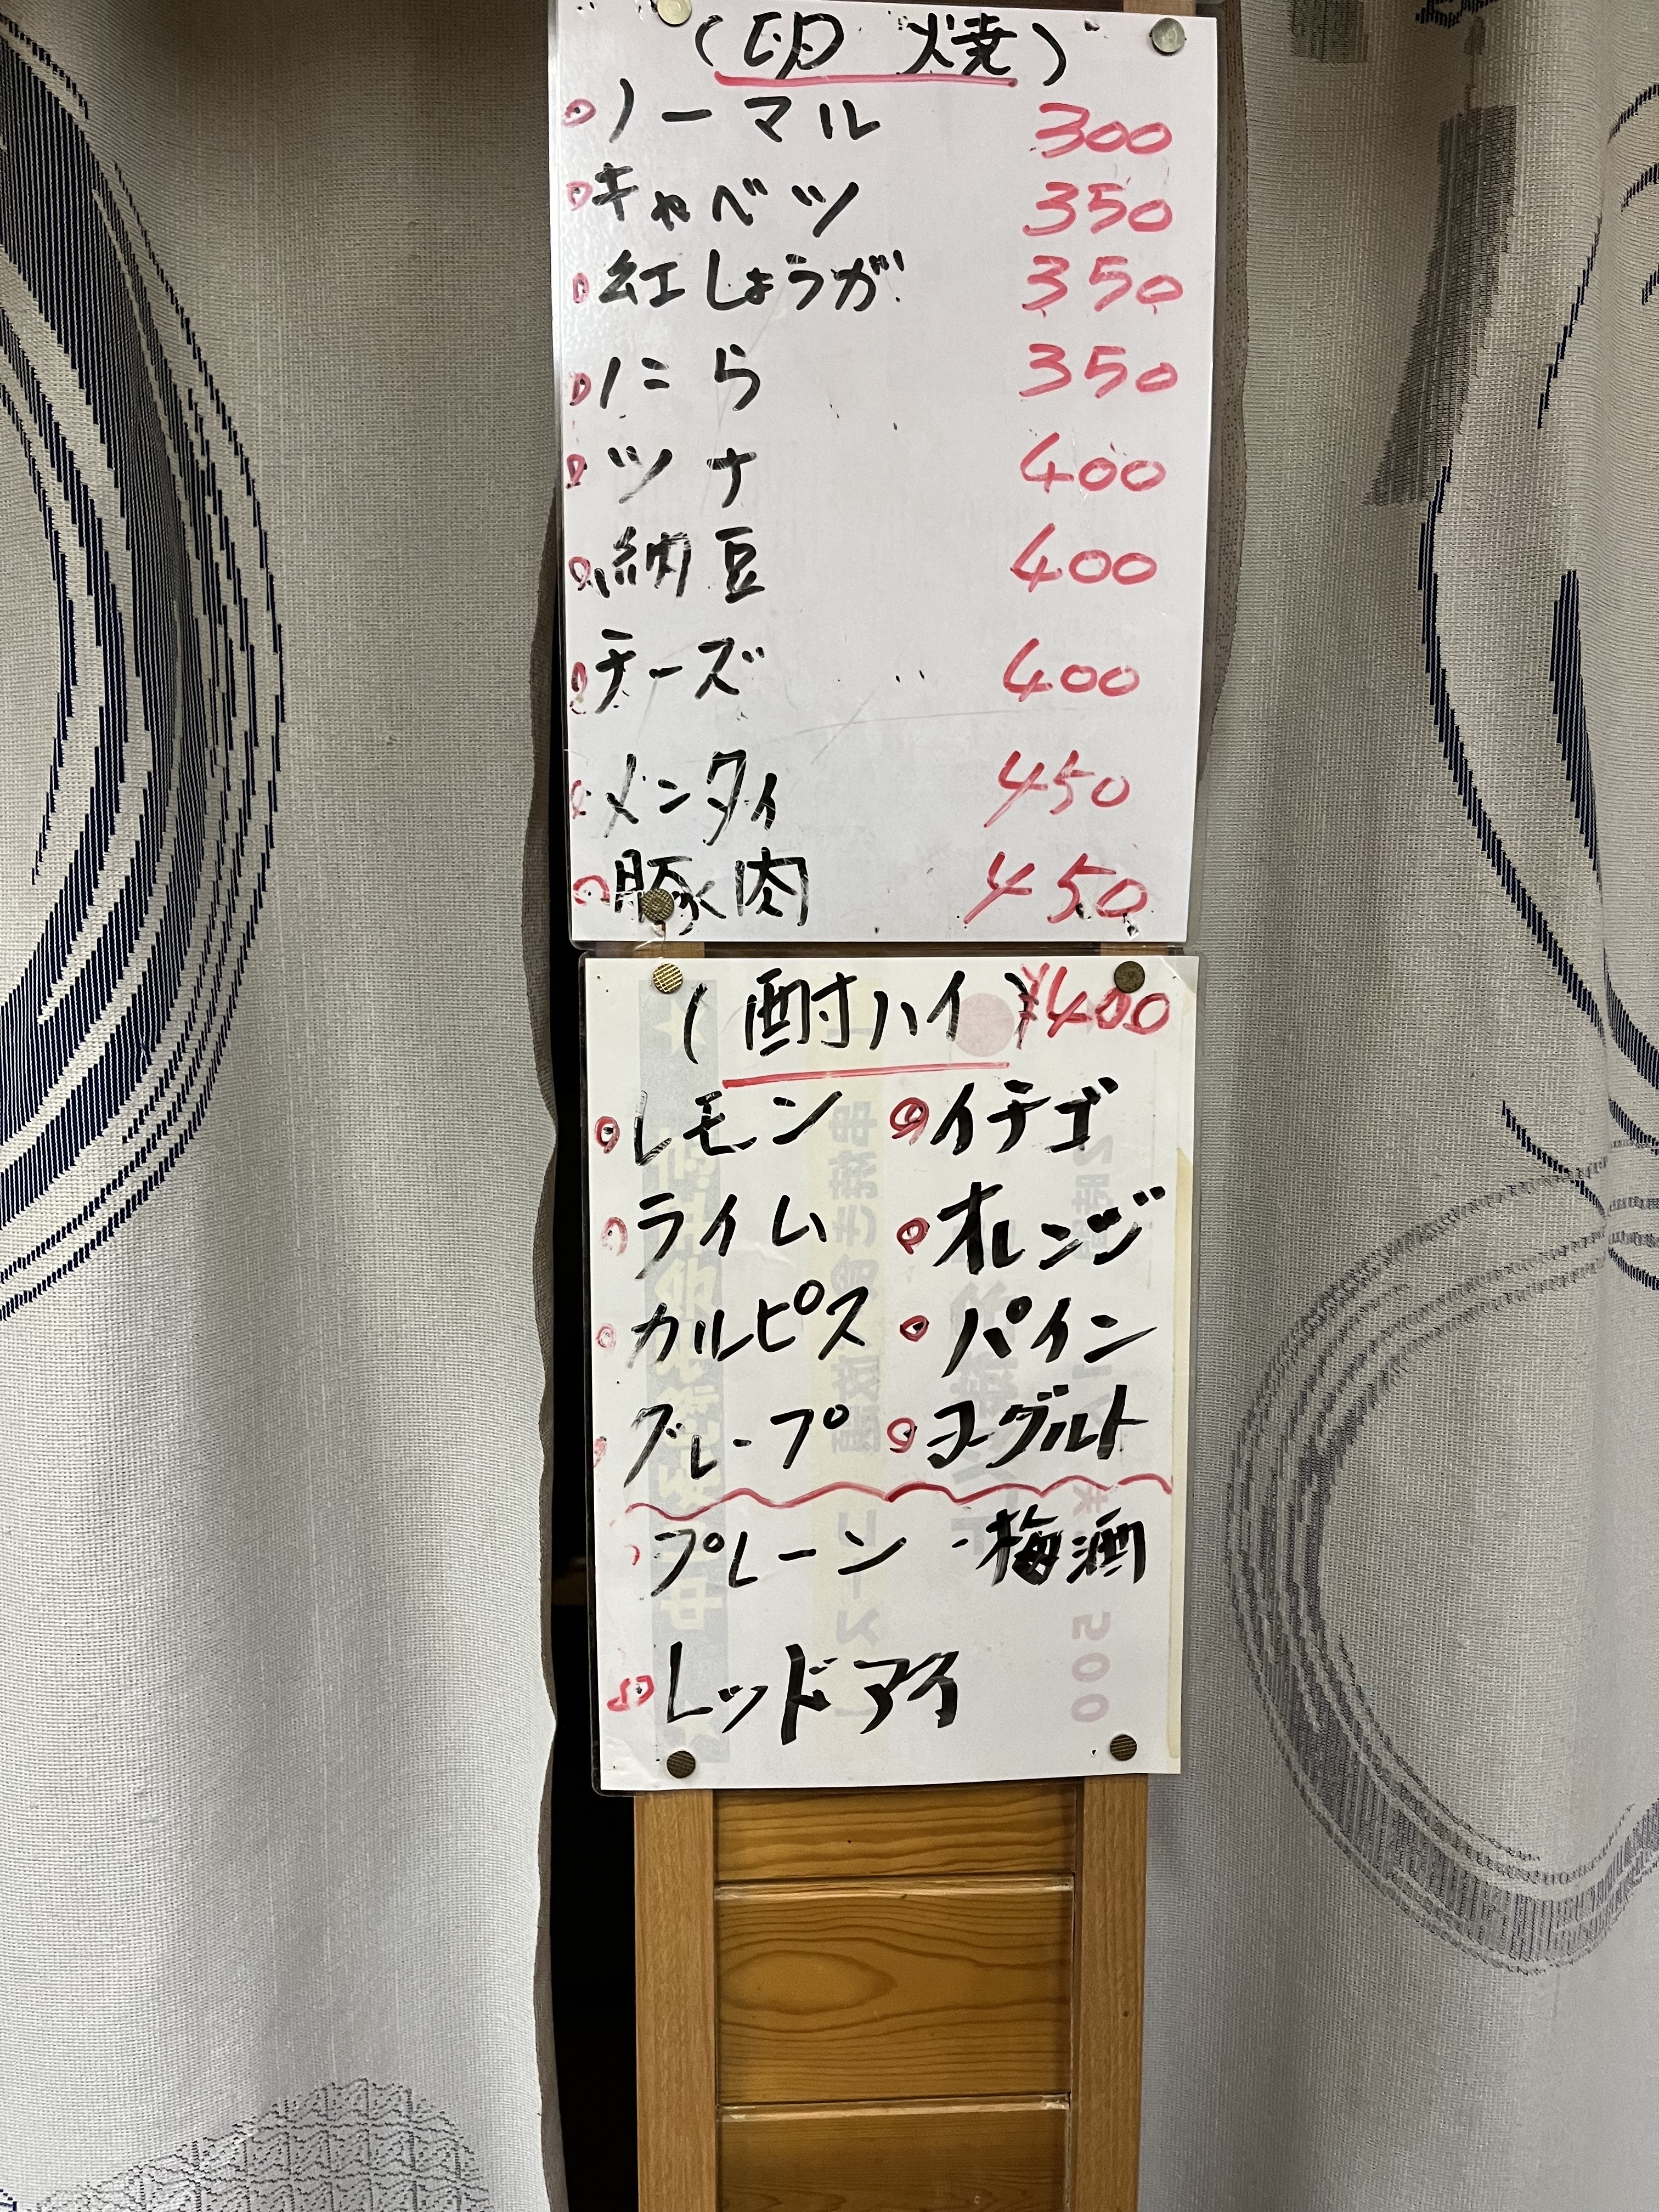 (卵焼)
ノーマル 300
キャベツ 350
紅しょうが 350
にら 350
ツナ 400
納豆 400
チーズ 400
メンタイ 450
豚肉 450
(酎ハイ) ¥400
レモン イチゴ
ライム オレンジ
カルピス パイン
グレープ ヨーグルト
プレーン ・梅酒
レッドアイ